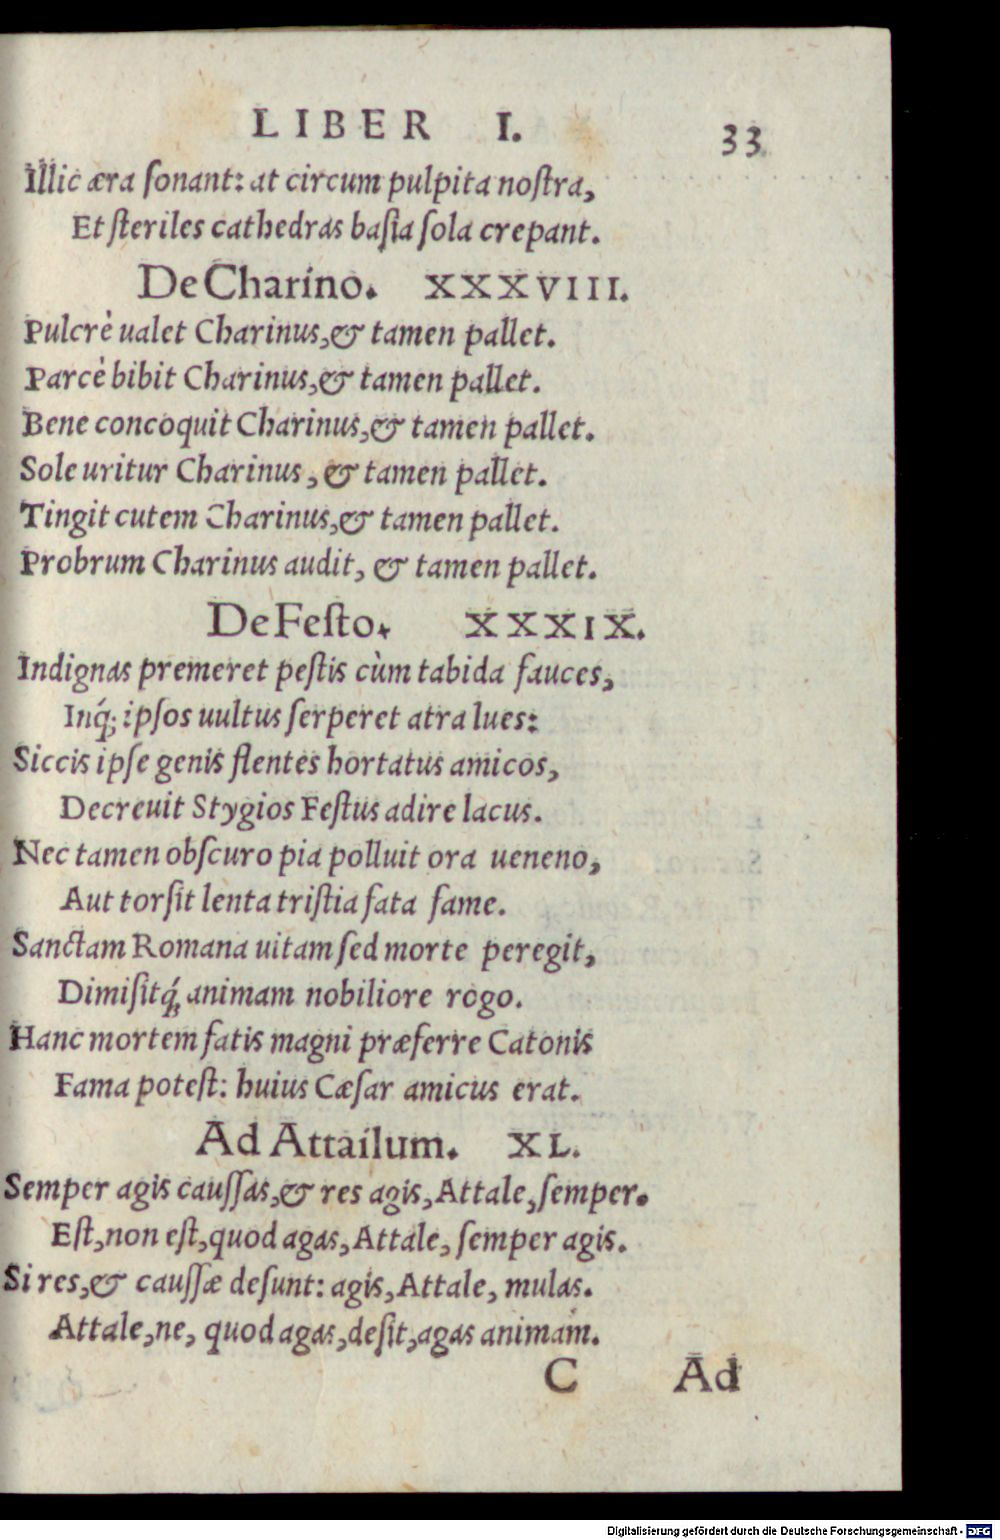 LIBER I. 33
Illic æra ſonant: at circum pulpita noſtra,
Et ſteriles cathedras baſia ſola crepant.
De Charino. XXXVIII.
Pulcrè ualet Charinus, & tamen pallet.
Parcè bibit Charinus, & tamen pallet.
Bene concoquit Charinus, & tamen pallet.
Sole uritur Charinus, & tamen pallet.
Tingit cutem Charinus, & tamen pallet.
Probrum Charinus audit, & tamen pallet.
De Feſto. XXXIX.
Indignas premeret peſtis cùm tabida fauces,
Inq́; ipſos uultus ſerperet atra lues:
Siccis ipſe genis flentes hortatus amicos,
Decreuit Stygios Feſtus adire lacus.
Nec tamen obſcuro pia polluit ora ueneno,
Aut torſit lenta triſtia fata fame.
Sanctam Romana uitam ſed morte peregit,
Dimiſitq́; animam nobiliore rogo.
Hanc mortem fatis magni præferre Catonis
Fama poteſt: huius Cæſar amicus erat.
Ad Attailum. XL.
Semper agis cauſſas, & res agis, Attale, ſemper.
Eſt, non eſt, quod agas, Attale, ſemper agis.
Si res, & cauſſæ deſunt: agis, Attale, mulas.
Attale, ne, quod agas, deſit, agas animam.
C Ad
Digitalisierung gefördert durch die Deutsche Forschungsgemeinschaft - DFG